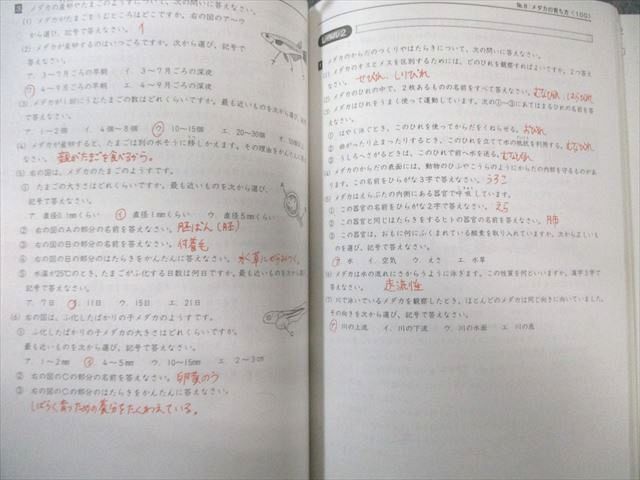 メダカの産卵やたまごのようすについて、次の問いに答えなさい。
から選び、記号で答えなさい。 イ
(2) メダカが産卵するのはいつごろですか。次から選び、記号で
答えなさい。
ア. 3〜7月ごろの早朝 イ. 3〜7月ごろの深夜
ウ. 4〜9月ごろの早朝 エ. 4〜9月ごろの深夜
(3) メダカが1回にうむたまごの数はどれくらいですか。最も近いものを次から選び、
答えなさい。
ア. 1〜2個 イ. 4個〜8個 ウ. 10〜15個 エ. 20〜30個
(4) メダカが産卵すると、たまごは別の水そうに移しかえます。その理由をかんたんに
なさい。 親がたまごを食べるから。
(5) 右の図は、メダカのたまごのようすです。
① たまごの大きさはどれくらいですか。最も近いものを次から選び、
記号で答えなさい。
ア. 直径0.1mmくらい イ. 直径1mmくらい ウ. 直径5mmくらい
② 右の図のAの部分の名前を答えなさい。 胚ばん(胚)
③ 右の図のBの部分の名前を答えなさい。 付着毛
④ 右の図のBの部分のはたらきをかんたんに答えなさい。 水草にからみつく。
⑤ 水温が25℃のとき、たまごがふ化する日数は何日ですか。最も近いものを次から
記号で答えなさい。
ア. 7日 イ. 11日 ウ. 15日 エ. 21日
(6) 右の図は、ふ化したばかりの子メダカのようすです。
① ふ化したばかりの子メダカの大きさはどれくらいですか。
最も近いものを次から選び、記号で答えなさい。
ア. 1〜2mm イ. 4〜5mm ウ. 10〜15mm エ. 2〜3cm
② 右の図のCの部分の名前を答えなさい。 卵黄のう
③ 右の図のCの部分のはたらきをかんたんに答えなさい。
しばらく育つための養分をたくわえている。
No.8 メダカの育ち方 (100)
メダカのからだのつくりやはたらきについて、次の問いに答えなさい。
(1) メダカのオスとメスを区別するためには、どのひれを観察すればよいですか。2つ答え
なさい。 せびれ、しりびれ
(2) メダカのひれの中で、2枚あるものの名前をすべて答えなさい。 むなびれ、はらびれ
(3) メダカはひれをうまく使って運動しています。次の①〜③にあてはまるひれの名前を
答えなさい。
① はやく泳ぐとき、このひれを使ってからだをくねらせる。 おびれ
② 曲がったり止まったりするとき、このひれを立てて水の抵抗を利用する。 むなびれ
③ うしろへさがるときは、このひれで前へ水を送る。 むなびれ
(4) メダカのからだの表面には、動物のひふやこうらのようにからだの内部を守るものがあ
ります。この名前をひらがな3字で答えなさい。 うろこ
(5) メダカはえらぶたの内側にある器官で呼吸しています。
① この器官の名前をひらがな2字で答えなさい。 えら
② この器官と同じはたらきをするヒトの器官の名前を答えなさい。 肺
③ この器官は、おもに何にふくまれている酸素を取り入れていますか。次から正しいも
のを選び、記号で答えなさい。
ア. 水 イ. 空気 ウ. えさ エ. 水草
(6) メダカは水の流れにさからうように泳ぎます。この性質を何といいますか。漢字3字で
答えなさい。 走流性
(7) 川で泳いでいるメダカを観察したとき、ほとんどのメダカは同じ向きに向いていました。
その向きを次から選び、記号で答えなさい。
ア. 川の上流 イ. 川の下流 ウ. 川の水面 エ. 川の底